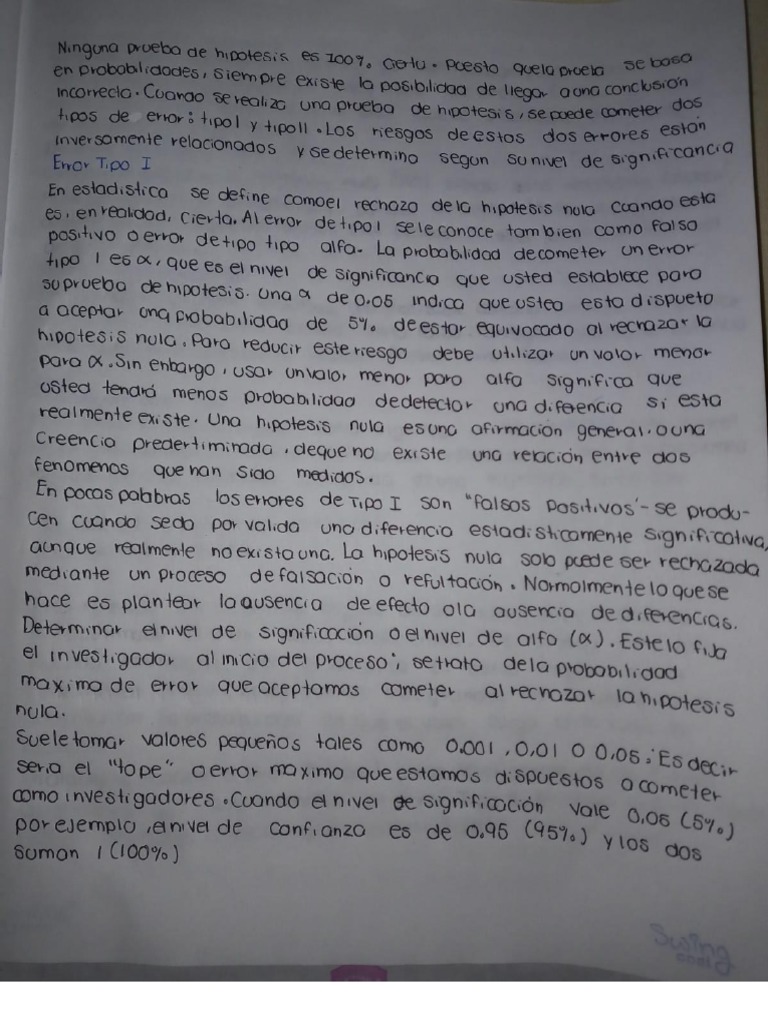 Ninguna prueba de hipotesis es 100% Certu. Puesto quela prueba se basa
en probabilidades, siempre existe la posibilidad de llegar a una conclusión
incorrecta. Cuando se realiza una prueba de hipotesis, se puede cometer dos
tipos de error: tipo I y tipo II. Los riesgos de estos dos errores están
inversamente relacionados y se determina segun su nivel de significancia
Error Tipo I
En estadistica se define como el rechazo de la hipotesis nula cuando esta
es, en realidad, cierta. Al error de tipo I se le conoce tambien como falso
positivo o error de tipo tipo alfa. La probabilidad de cometer un error
tipo I es α, que es el nivel de significancia que usted establece para
su prueba de hipotesis. una α de 0.05 indica que usted esta dispueto
a aceptar una probabilidad de 5% de estar equivocado al rechazar la
hipotesis nula. Para reducir este riesgo debe utilizar un valor menor
para α. Sin enbargo, usar un valor menor para alfa significa que
usted tendrá menos probabilidad de detectar una diferencia si esta
realmente existe. Una hipotesis nula es una afirmación general. o una
Creencia predertiminada, de que no existe una relación entre dos
fenomenos que han sido medidos.
En pocas palabras los errores de Tipo I son "falsos positivos"- se produ-
cen cuando se da por valida una diferencia estadisticamente significativa,
aunque realmente no exista una. La hipotesis nula solo puede ser rechazada
mediante un proceso de falsación o refultación. Normolmente lo que se
hace es plantear la ausencia de efecto o la ausencia de diferencias.
Determinar el nivel de significación o el nivel de alfa (α). Este lo fija
el investigador al inicio del proceso; se trata de la probabilidad
maxima de error que aceptamos cometer al rechazar la hipotesis
nula.
Suele tomar valores pequeños tales como 0.001, 0.01 o 0.05; Es decir
seria el "tope" o error maximo que estamos dispuestos a cometer
como investigadores. Cuando el nivel de significación vale 0.05 (5%)
por ejemplo, el nivel de confianza es de 0.95 (95%) y los dos
suman 1 (100%)
Swing